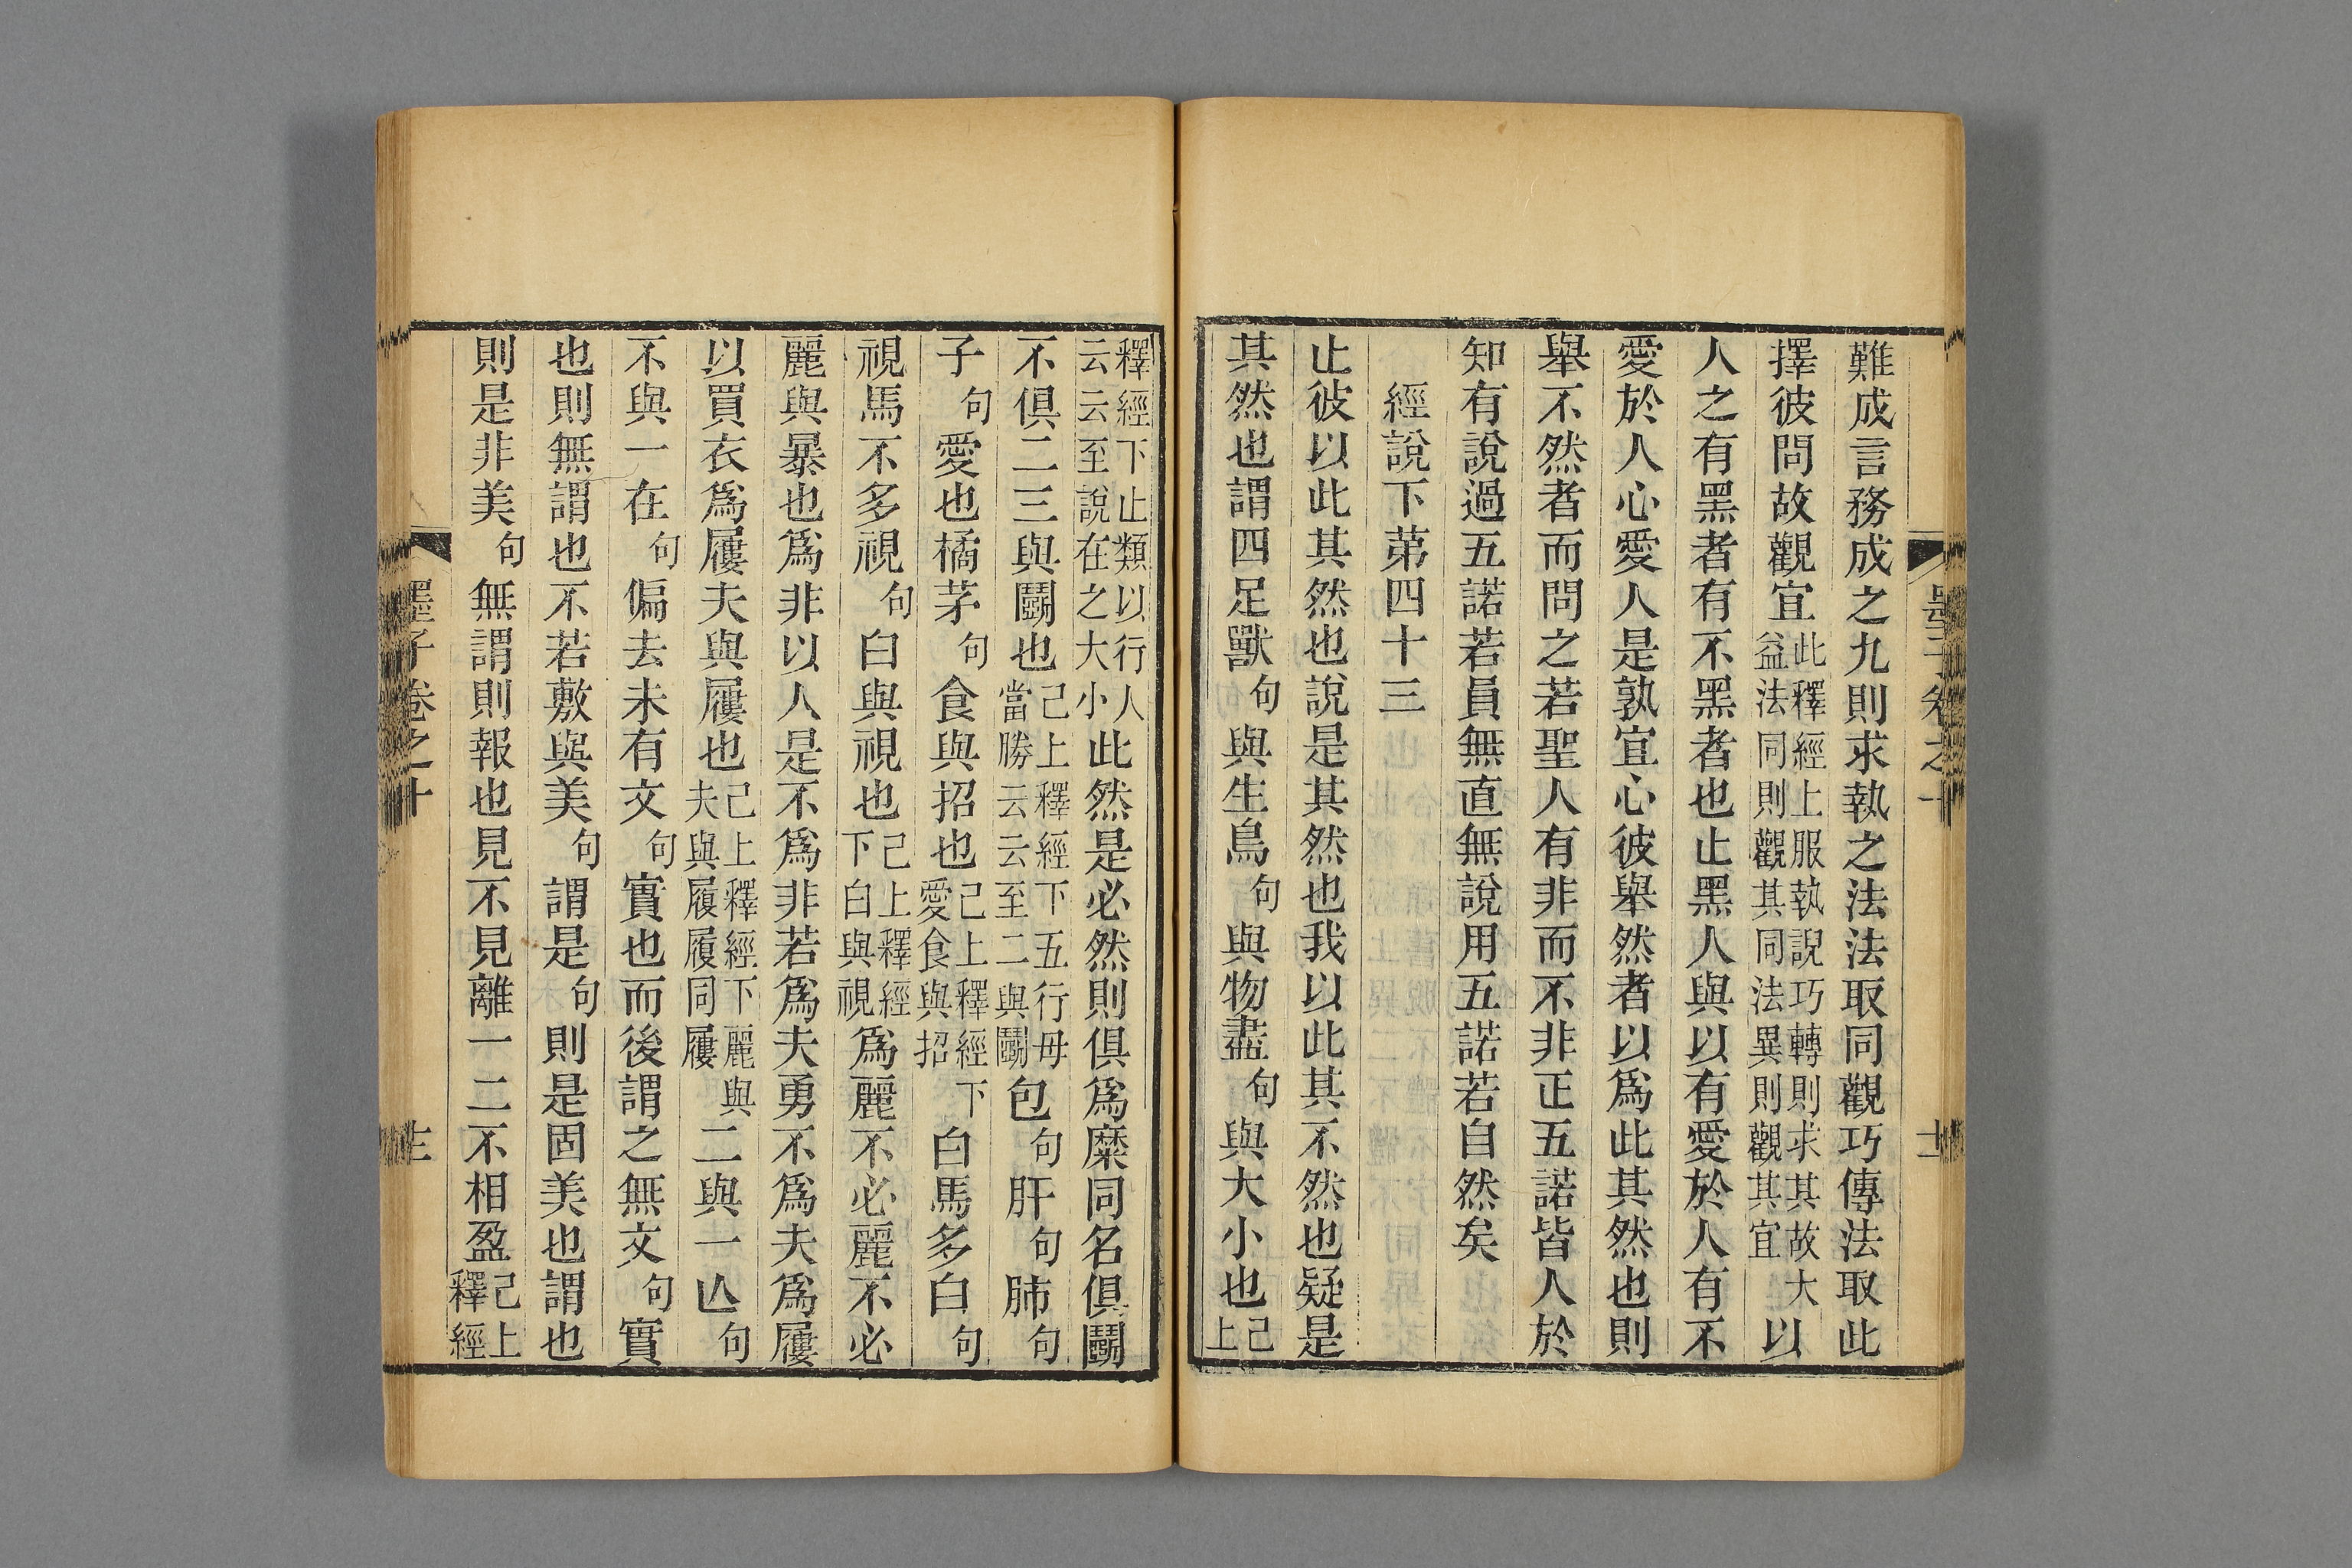 難成言務成之九則求執之法法取同觀巧傳法取此
擇彼問故觀宜此釋經上服執說巧轉則求其故大益法同則觀其同法異則觀其宜以
人之有黑者有不黑者也止黑人與以有愛於人有不
愛於人心愛人是孰宜心彼舉然者以爲此其然也則
舉不然者而問之若聖人有非而不非正五諾皆人於
知有說過五諾若員無直無說用五諾若自然矣
經說下第四十三
止彼以此其然也說是其然也我以此其不然也疑是
其然也謂四足獸句與生鳥句與物盡句與大小也己上
釋經下止類以行人云云至說在之大小此然是必然則俱爲糜同名俱鬭
不俱二三與鬭也己上釋經下五行毋當勝云云至二與鬭包句肝句肺句
子句愛也橘茅句食與招也己上釋經下愛食與招白馬多白句
視馬不多視句白與視也己上釋經下白與視爲麗不必麗不必
麗與暴也爲非以人是不爲非若爲夫勇不爲夫爲屨
以買衣爲屨夫與屨也己上釋經下麗與夫與履履同屨二與一亾句
不與一在句偏去未有文句實也而後謂之無文句實
也則無謂也不若敷與美句謂是句則是固美也謂也
則是非美句無謂則報也見不見離一二不相盈己上釋經
墨子卷之十